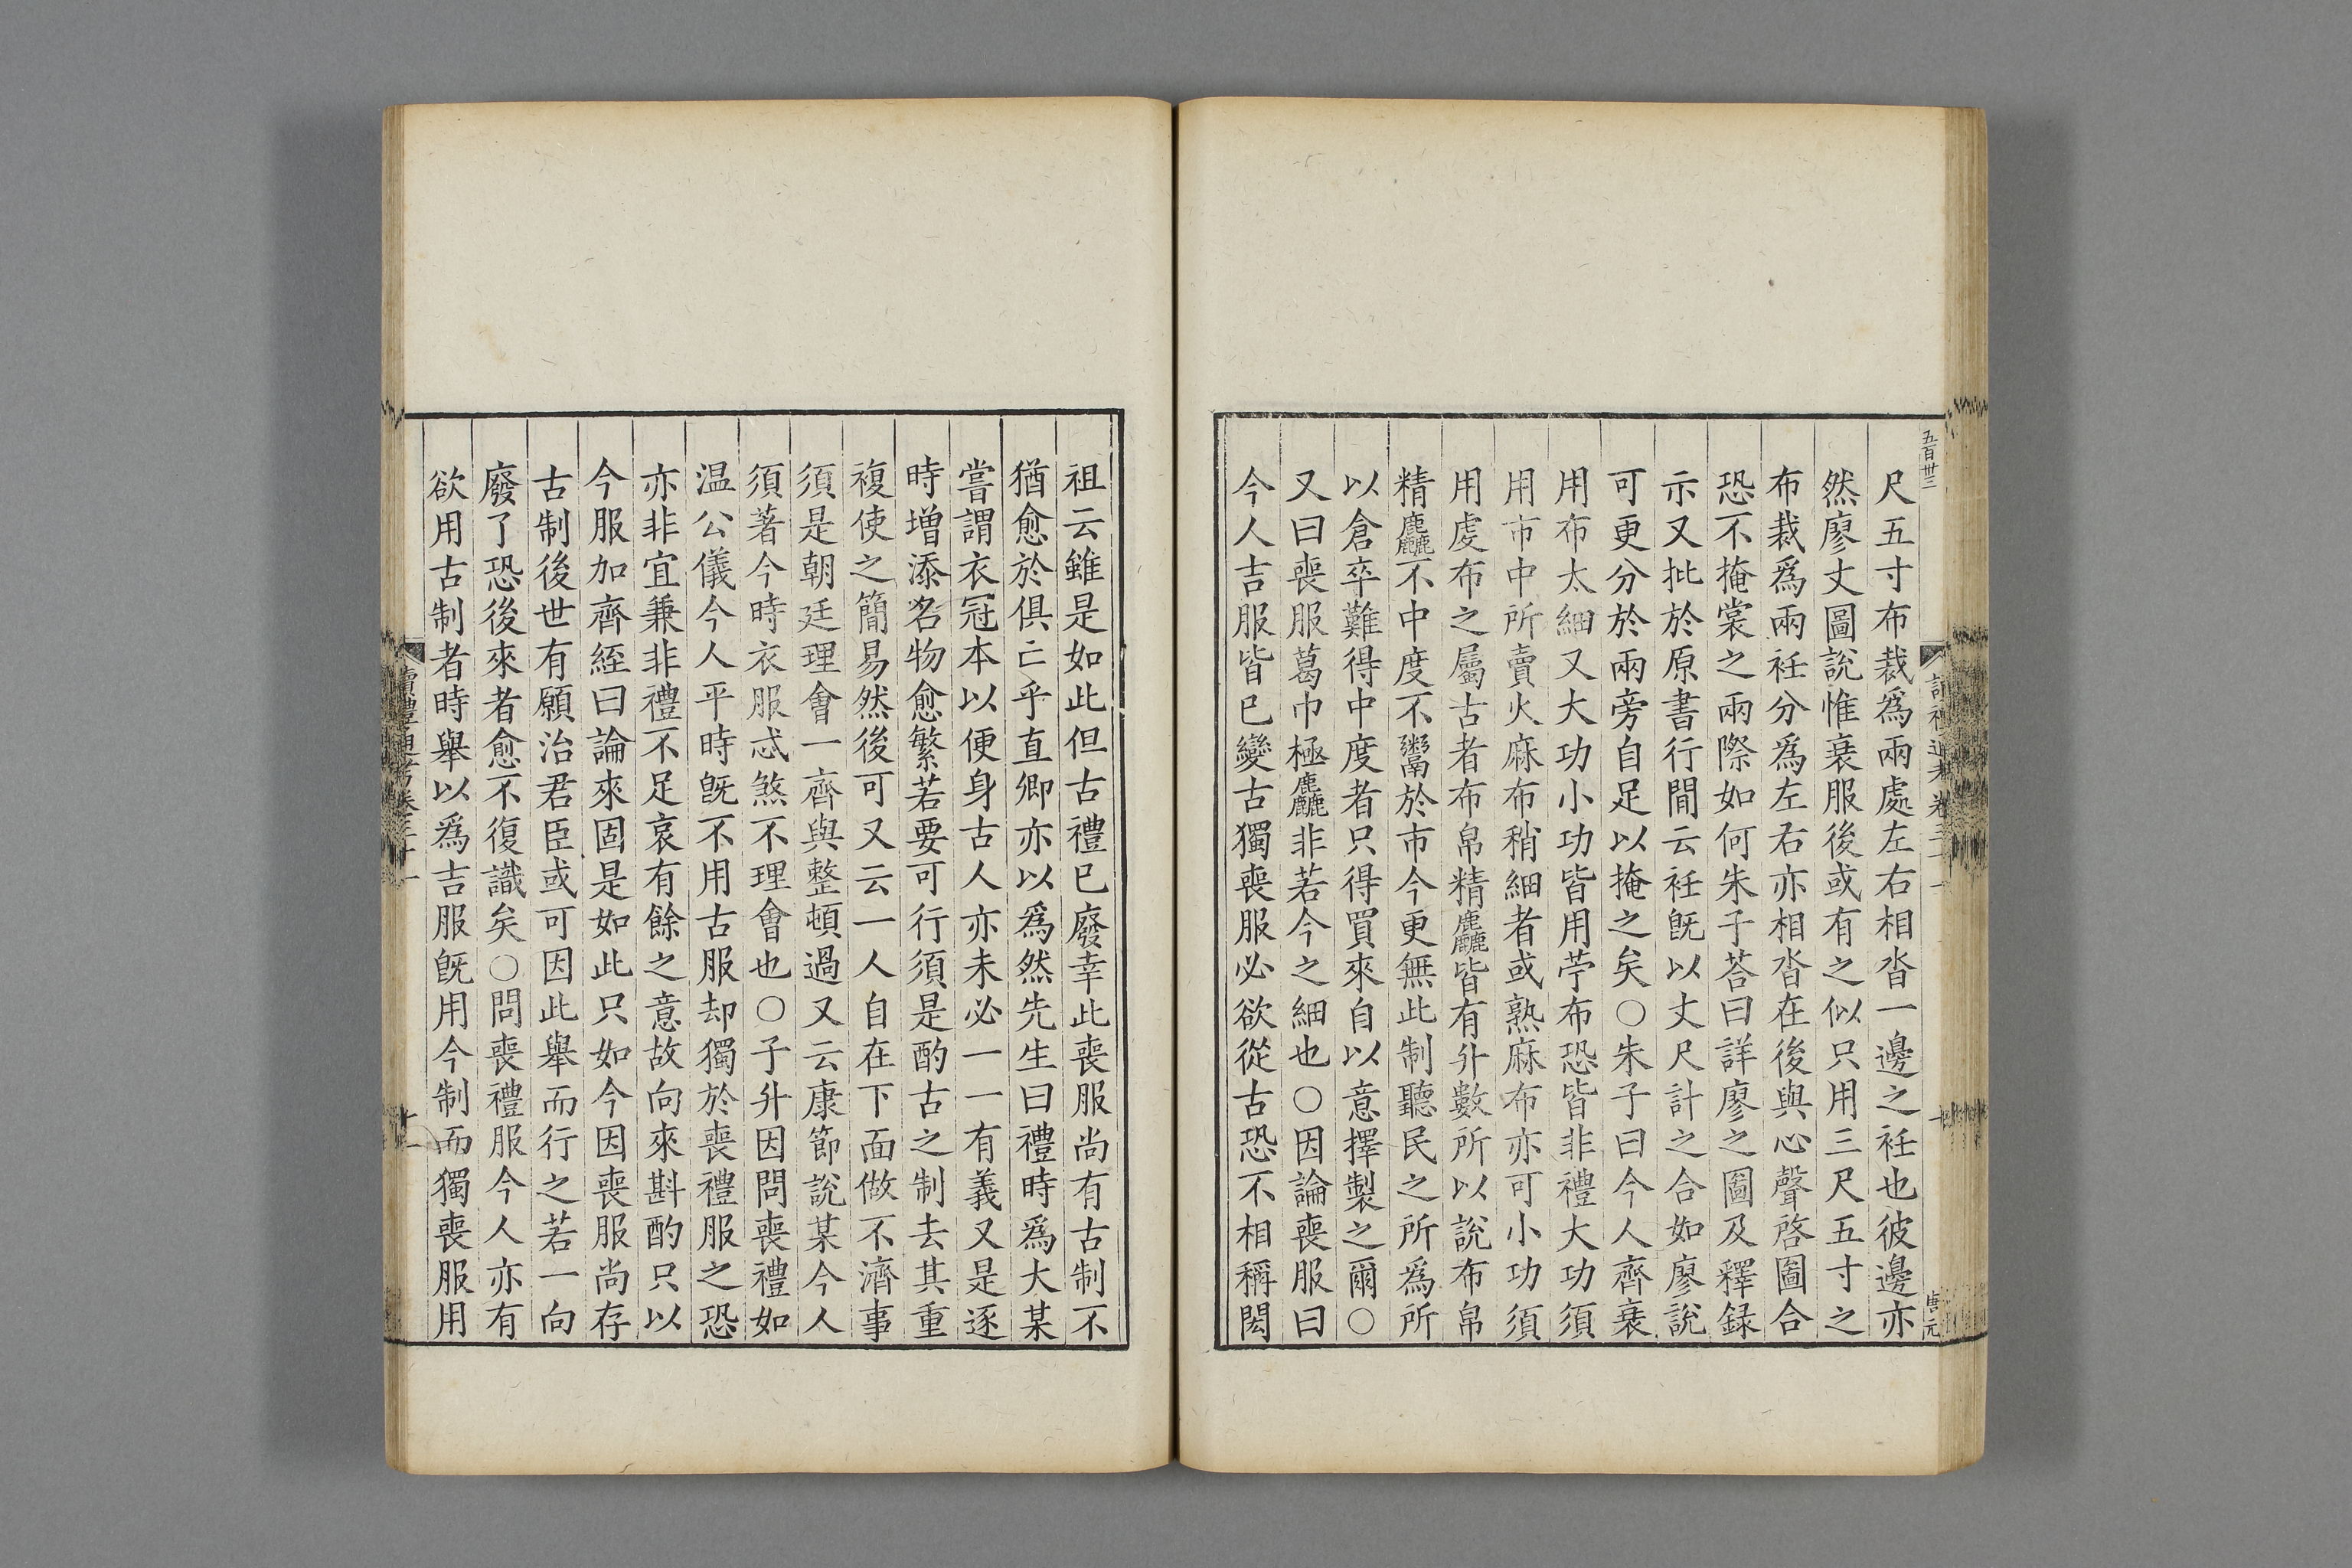 五百卅三
尺五寸布裁爲兩處左右相沓一邊之衽也彼邊亦
然廖丈圖說惟衰服後或有之似只用三尺五寸之
布裁爲兩衽分爲左右亦相沓在後與心聲啓圖合
恐不掩裳之兩際如何朱子荅曰詳廖之圖及釋録
示又批於原書行間云衽旣以丈尺計之合如廖說
可更分於兩旁自足以掩之矣○朱子曰今人齊衰
用布太細又大功小功皆用苧布恐皆非禮大功須
用市中所賣火麻布稍細者或熟麻布亦可小功須
用虔布之屬古者布帛精麤皆有升數所以說布帛
精麤不中度不鬻於市今更無此制聽民之所爲所
以倉卒難得中度者只得買來自以意擇製之爾○
又曰喪服葛巾極麤非若今之細也○因論喪服曰
今人吉服皆已變古獨喪服必欲從古恐不相稱閎
祖云雖是如此但古禮已廢幸此喪服尚有古制不
猶愈於俱亡乎直卿亦以爲然先生曰禮時爲大某
嘗謂衣冠本以便身古人亦未必一一有義又是逐
時增添名物愈繁若要可行須是酌古之制去其重
複使之簡易然後可又云一人自在下面做不濟事
須是朝廷理會一齊與整頓過又云康節說某今人
須著今時衣服忒煞不理會也○子升因問喪禮如
温公儀今人平時旣不用古服却獨於喪禮服之恐
亦非宜兼非禮不足哀有餘之意故向來斟酌只以
今服加齊絰曰論來固是如此只如今因喪服尚存
古制後世有願治君臣或可因此舉而行之若一向
廢了恐後來者愈不復識矣○問喪禮服今人亦有
欲用古制者時舉以爲吉服旣用今制而獨喪服用
讀禮通考卷三十一
十一